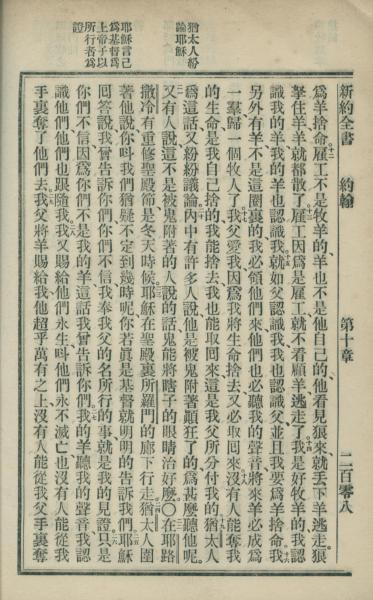 新約全書 約翰 第十章 二百零八
爲羊捨命雇工不是牧羊的羊也不是他自己的他看見狼來就丟下羊逃走狼
拏住羊羊就都散了雇工因爲是雇工就不看顧羊逃走了我是好牧羊的我認
識我的羊我的羊也認識我就如父認識我我也認識父並且我要爲羊捨命我
另外有羊不是這圈裏的我必領他們來他們也必聽我的聲音將來羊必成爲
一羣歸一個牧人了我父愛我因爲我將生命捨去又必取回來沒有人能奪我
的生命是我自己捨的我能捨去我也能取回來這是我父所分付我的猶太人
猶太人紛
論耶穌
爲這話又紛紛議論內中有許多人說他是被鬼附著顛狂了的爲甚麼聽他呢
又有人說這不是被鬼附著的人說的話鬼能將瞎子的眼睛治好麼○在耶路
撒冷有重修聖殿節是冬天時候耶穌在聖殿裏所羅門的廊下行走猶太人圍
耶穌言己
爲基督爲
上帝子以
所行者爲
證
著他說你呌我們猶疑不定到幾時呢你若眞是基督就明明的告訴我們耶穌
回答說我曾告訴你們你們不信我奉我父的名所行的事就是我的見證只是
你們不信因爲你們不是我的羊這話我曾告訴你們我的羊聽我的聲音我認
識他們他們也跟隨我我又賜給他們永生呌他們永不滅亡也沒有人能從我
手裏奪了他們去我父將羊賜給我他超乎萬有之上沒有人能從我父手裏奪